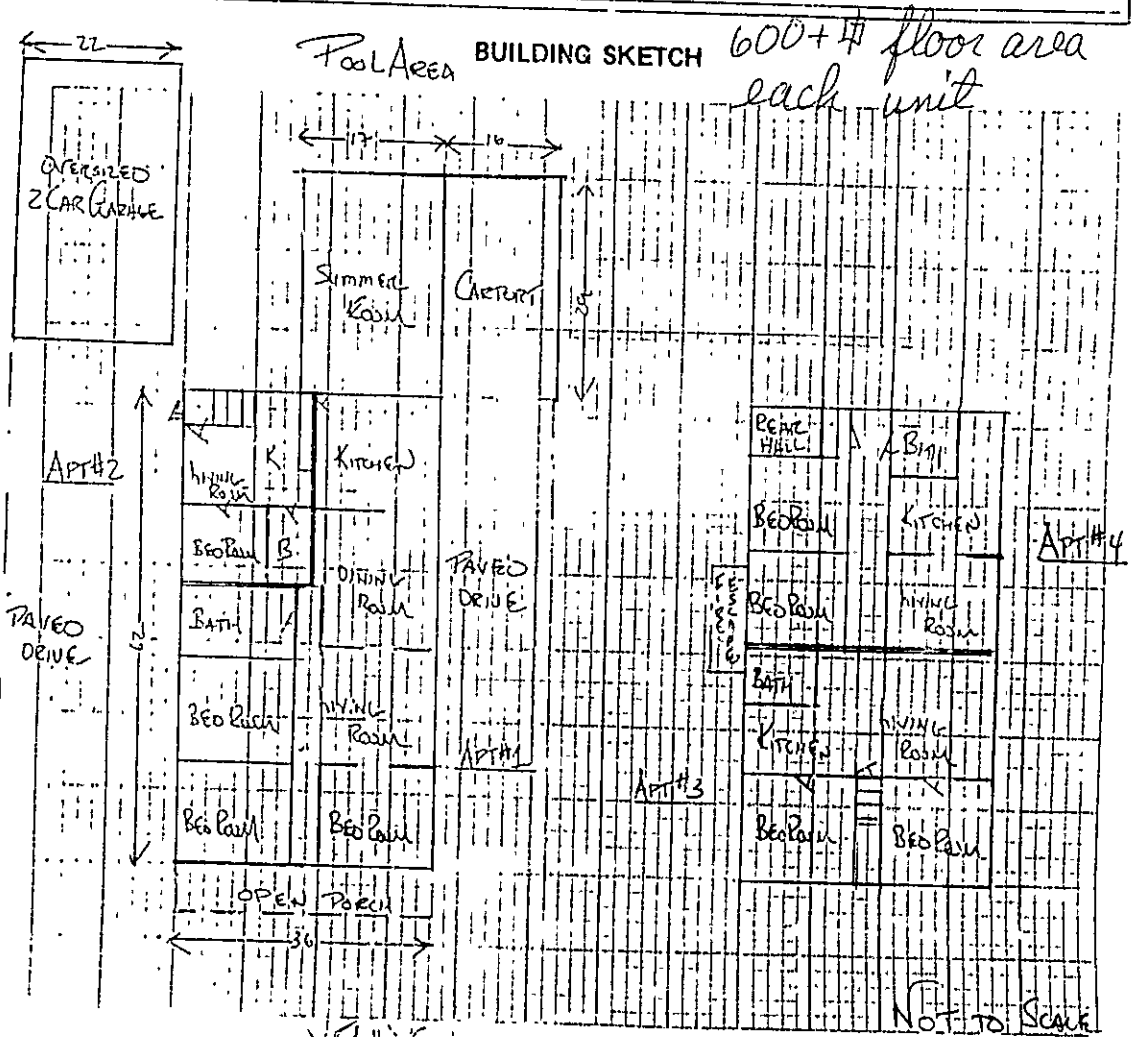 22
POOL AREA
BUILDING SKETCH
600+ # floor area
each unit
17
16
OVERSIZED
2 CAR GARAGE
SUMMER
ROOM
CARPORT
APT#2
K
KITCHEN
LIVING
ROOM
BEDROOM
B
DINING
ROOM
PAVED
DRIVE
PAVED
DRIVE
BATH
BEDROOM
LIVING
ROOM
APT#1
BEDROOM
BEDROOM
OPEN PORCH
36
REAR
HALL
BATH
BEDROOM
KITCHEN
APT#4
BEDROOM
LIVING
ROOM
BATH
KITCHEN
LIVING
ROOM
APT#3
BEDROOM
BEDROOM
NOT TO SCALE